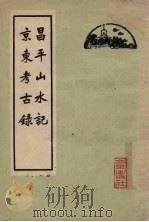 昌平山水記
京東考古錄